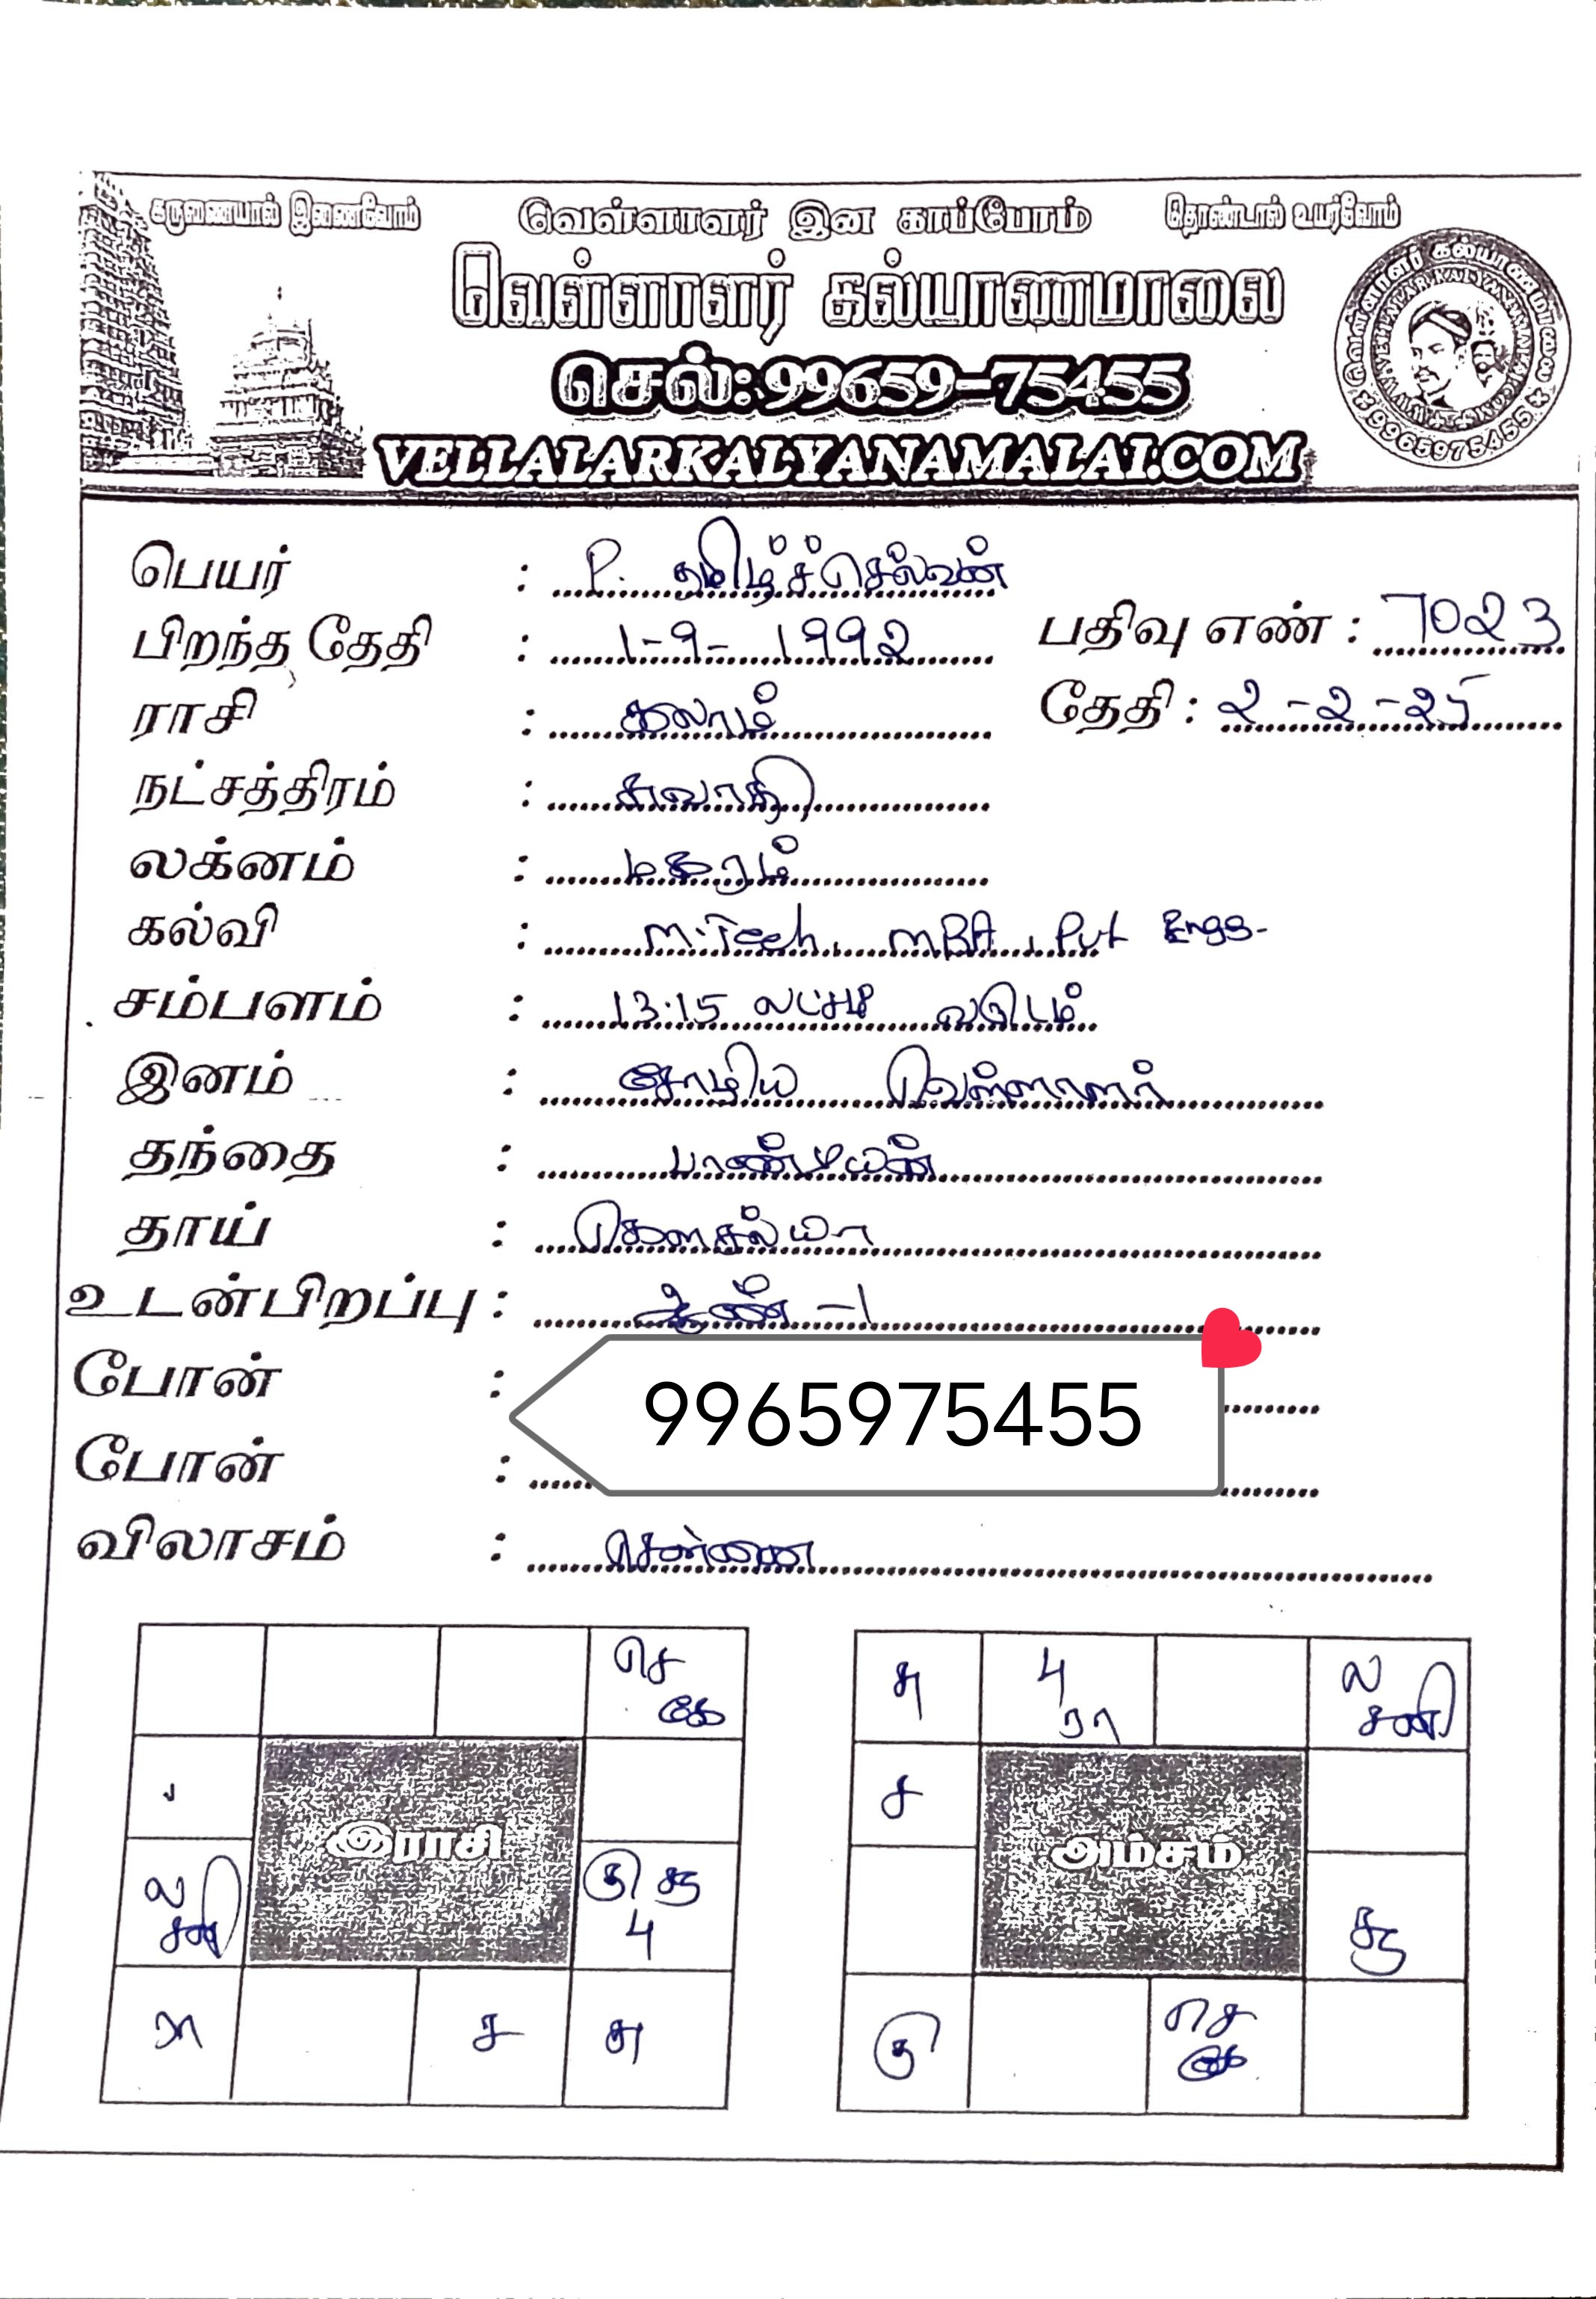 கருணையால் இணைவோம் வெள்ளாளர் இன காப்போம் தொண்டால் உயர்வோம்
வெள்ளாளர் கல்யாணமாலை
செல்: 99659-75455
VELLALARKALYANAMALAI.COM
வெள்ளாளர் கல்யாணமாலை
9965975455
பெயர் : P. தமிழ்ச்செல்வன்
பிறந்த தேதி : 1-9-1992 பதிவு எண் : 7023
ராசி : துலாம் தேதி : 2-2-25
நட்சத்திரம் : சுவாதி
லக்னம் : மகரம்
கல்வி : M.Tech, MBA, Pvt Engg-
சம்பளம் : 13.15 லட்சம் வருடம்
இனம் : சோழிய வெள்ளாளர்
தந்தை : பாண்டியன்
தாய் : கௌசல்யா
உடன்பிறப்பு : ஆண் -1
போன் : 9965975455
போன் :
விலாசம் : சென்னை
செ
கே
இராசி
ல
சனி
குரு சூ
பு
ரா
ச
சு
சு
பு
ரா
ல
சனி
ச
அம்சம்
சூ
கு
செ
கே